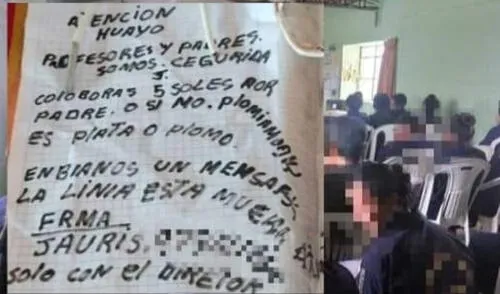 ATENCION
HUAYO
PROFESORES Y PADRES.
SOMOS. CEGURIDA
COLOBORAS 5 SOLES POR
PADRE. O SI NO. PlOMIAMOS
ES PlATA O PlOMO.
ENBIANOS UN MENSAFS
LA LINIA ESTA MUERTA
FRMA
JAURIS.
SOLO CON El DIRETOR